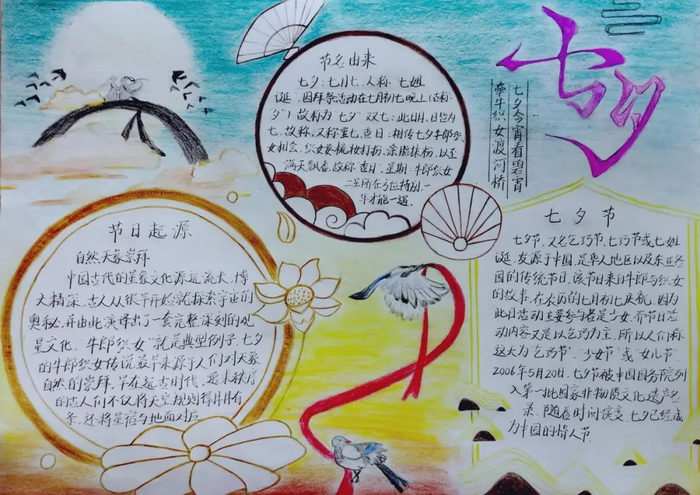 七夕
七夕今宵看碧霄
牵牛织女渡河桥
节名由来
七夕:七月七,人称:七姐
诞,因拜祭活动在七月初七晚上(名称:
夕)故称为"七夕"双七:此日月、日皆为
七,故称,又称重七,
相传七夕牛郎织
女相会,织女要梳妆打扮、涂脂抹粉,以至
满天飘香,故称香日。星期:牛郎织女
二星所在的
特别,一
年才能一遇。
节日起源
自然天象崇拜
中国古代的星象文化源远流长、博
大精深,古人从很早开始就探索宇宙的
奥秘,并由此演绎出了一套完整深刻的观
星文化。"牛郎织女"就是典型例子,七夕
的牛郎织女传说最早来源于人们对天象
自然的崇拜。早在远古时代,
的古人们不仅将天空规划得井井有
条,还将星宿与地面对应
七夕节
七夕节,又名乞巧节、七巧节或七姐
诞,发源于中国,是华人地区以及东亚各
国的传统节日,该节日来自牛郎与织女
的故事,在农历的七月初七庆祝,因为
此日活动主要参与者是少女,而节日活
动内容又是以乞巧为主,所以人们称
这天为"乞巧节""少女节"或"女儿节"
2006年5月20日,七夕被中国国务院列
入第一批国家非物质文化遗产名
录。随着时间演变,七夕已经成
为中国的情人节